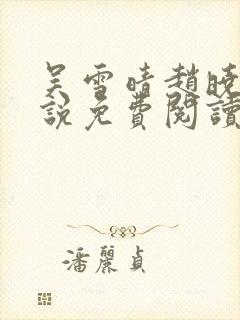 吴雪晴趙曉
說免費閱讀
潘麗貞